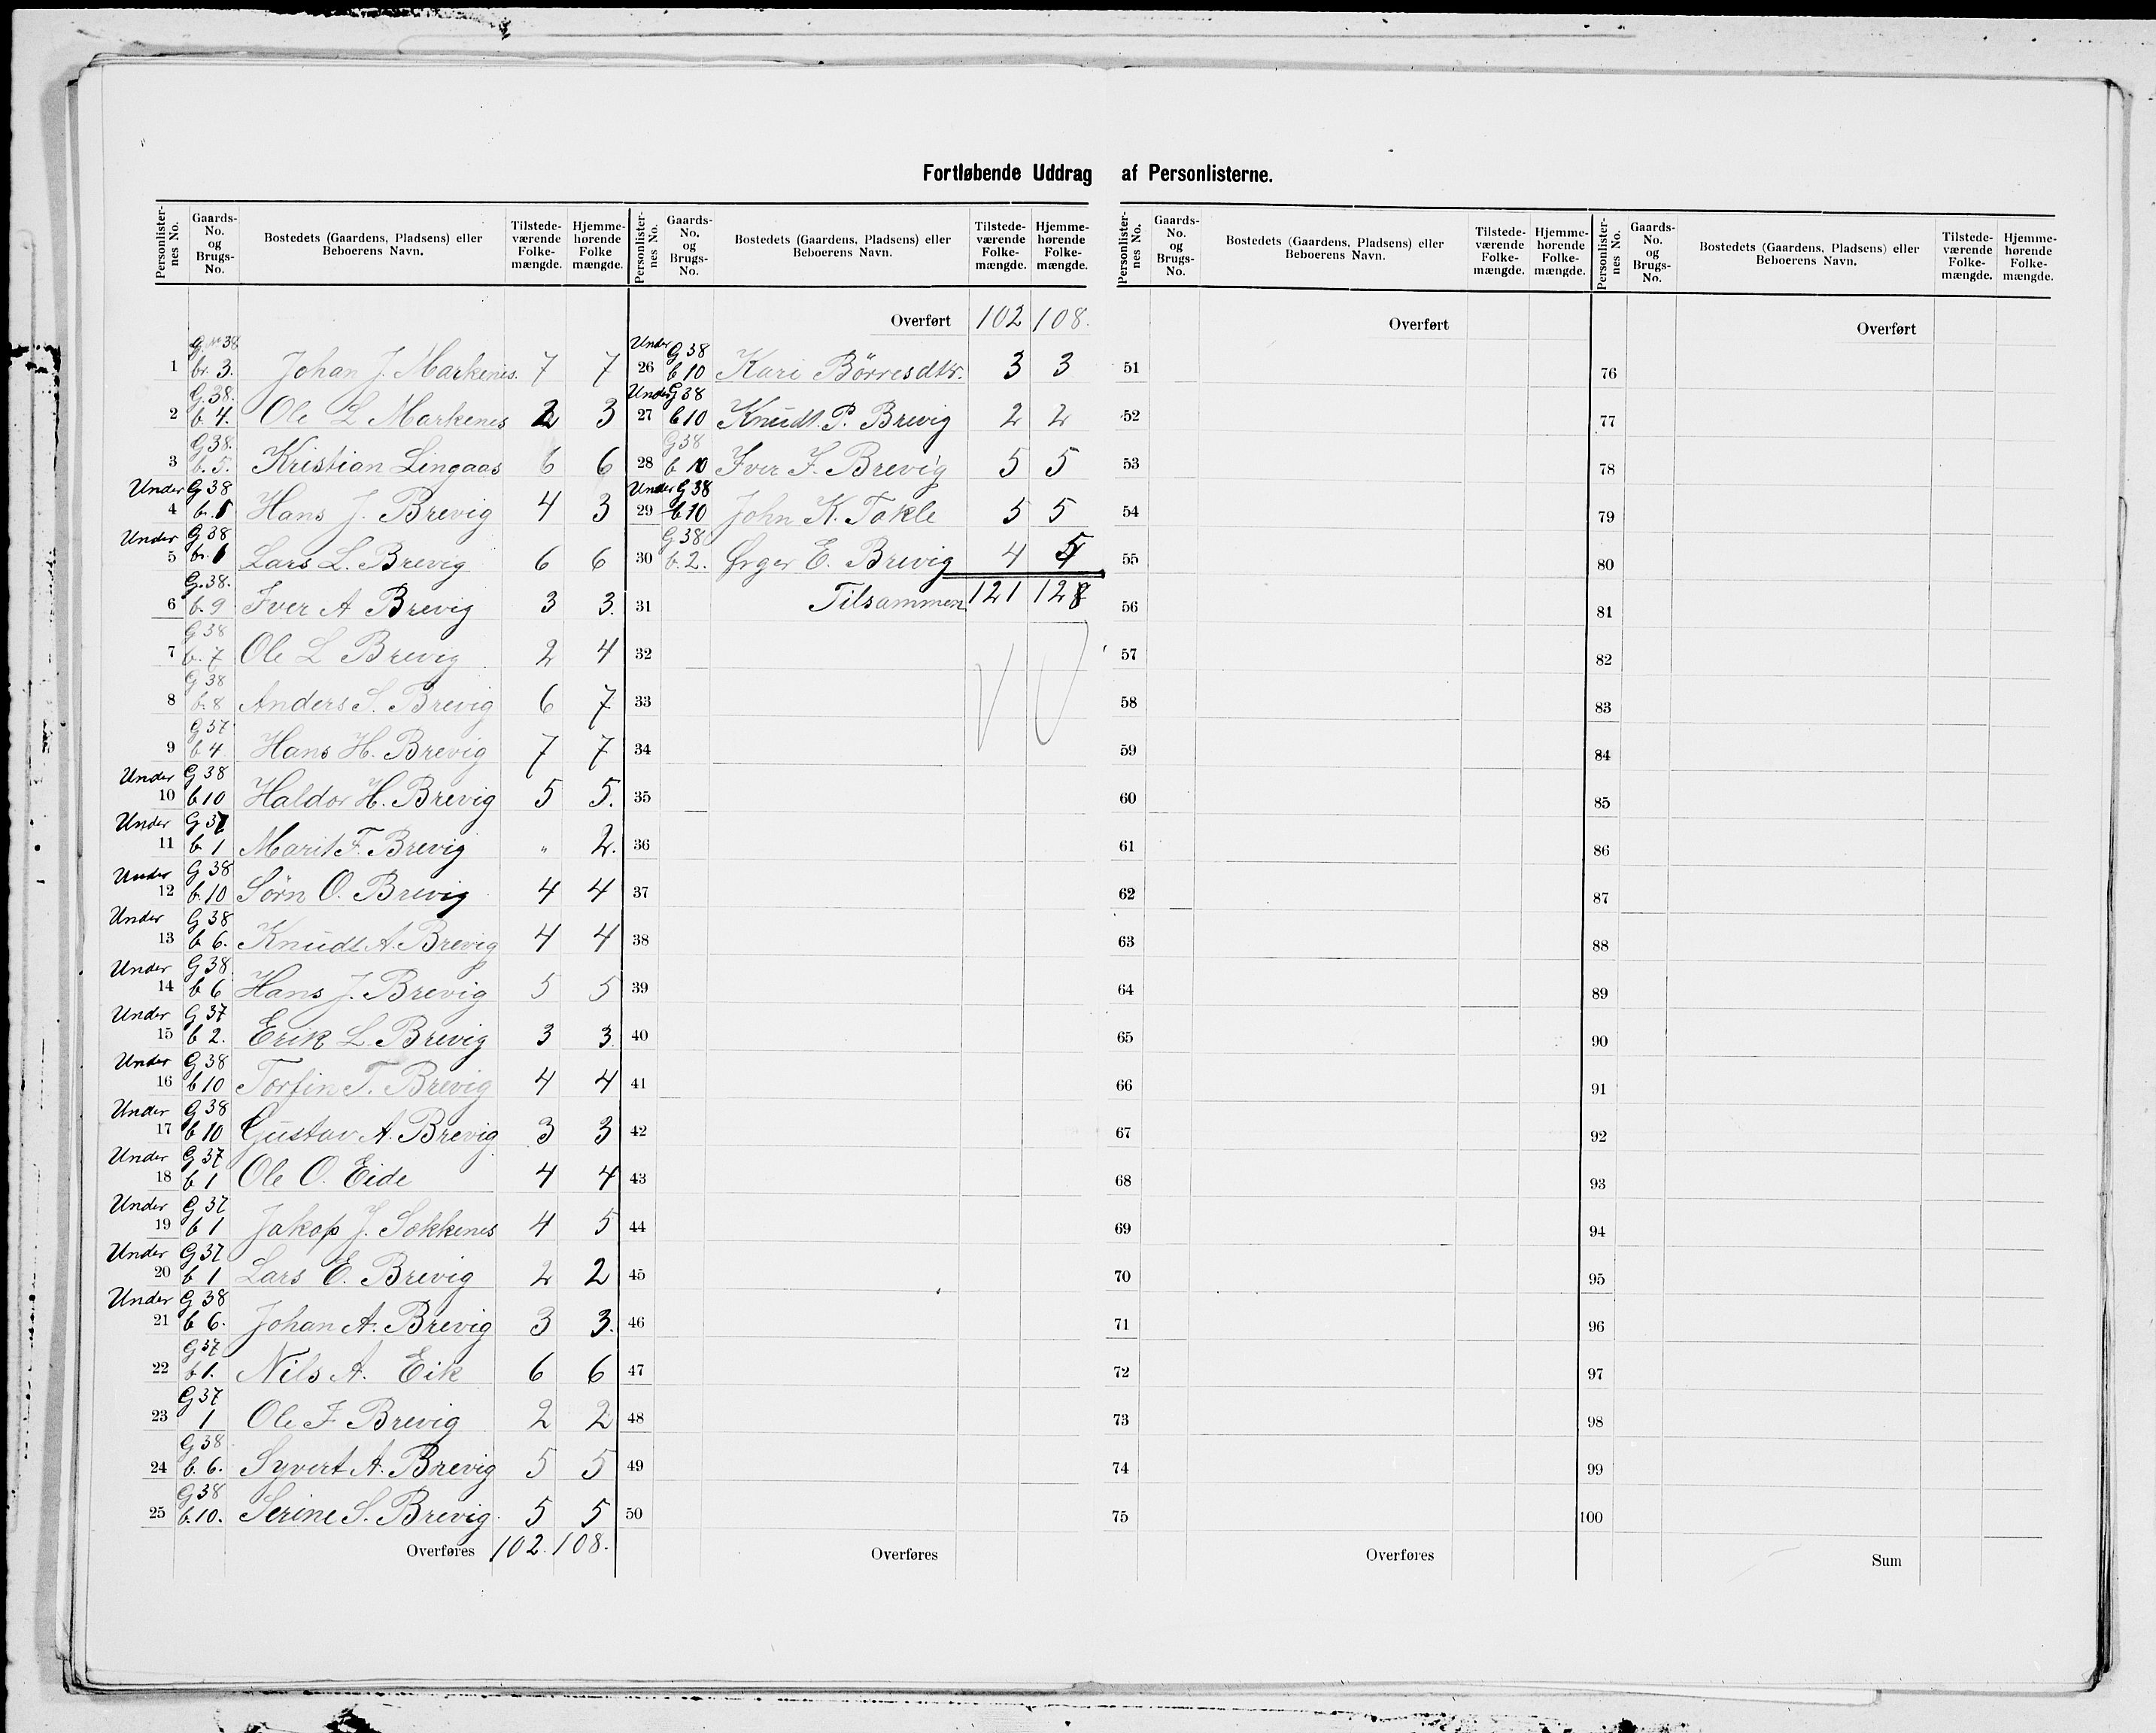 Fortløbende Uddrag af Personlisterne.
Personlister-nes No. Gaards-No. og Brugs-No. Bostedets (Gaardens, Pladsens) eller Beboerens Navn. Tilstede-værende Folke-mængde. Hjemme-hørende Folke mængde.
G. No 38
1 br. 3. Johan J. Markenes. 7 7
G. 38.
2 b. 4. Ole L Markenes 2 3
G 38.
3 b. 5. Kristian Lingaas 6 6
Under G 38
4 br. 1 Hans J. Brevig 4 3
Under G 38
5 br. 1 Lars L. Brevig 6 6
G. 38.
6 b. 9 Iver A Brevig 3 3.
G 38
7 b. 7 Ole L Brevig 2 4
G 38
8 b. 8 Anders S. Brevig 6 7
G 37
9 b 4 Hans H. Brevig 7 7
Under G 38
10 b 10 Haldor H. Brevig 5 5.
Under G 37
11 b 1 Marit F. Brevig " 2.
Under G 38
12 b. 10 Sörn O. Brevig 4 4
Under G 38
13 b 6. Knudt A. Brevig 4 4
Under G 38.
14 b 6 Hans J. Brevig 5 5
Under G 37
15 b 2. Erik L. Brevig 3 3.
Under G 38
16 b 10 Torfin T. Brevig 4 4
Under G 38
17 b 10 Gustav A. Brevig 3 3
Under G 37
18 b 1 Ole O. Eide 4 4
Under G 37
19 b 1 Jakop J. Sokkenes 4 5
Under G 37
20 b 1 Lars E. Brevig 2 2
Under G 38
21 b 6. Johan A. Brevig 3 3.
G 37
22 b 1. Nils A. Eik 6 6
G 37
23 1 Ole F Brevig 2 2
G 38
24 b. 6. Syvert A. Brevig 5 5
G 38
25 b. 10. Serine S. Brevig. 5 5
Overføres 102. 108.
Personlister-nes No. Gaards-No. og Brugs-No. Bostedets (Gaardens, Pladsens) eller Beboerens Navn. Tilstede-værende Folke-mængde. Hjemme-hørende Folke-mængde.
Overført 102 108.
Under G 38
26 b 10 Kari Börresdtr. 3 3
Under G 38
27 b 10 Knudt. P. Brevig 2 2
G 38
28 b 10 Iver I. Brevig 5 5
Under G 38
29 b 10 John K. Takle 5 5
G 38
30 b. 2. Ørger E. Brevig 4 5
31 Tilsammen 121 128
32
33
34
35
36
37
38
39
40
41
42
43
44
45
46
47
48
49
50
Overføres
Personlister-nes No. Gaards-No. og Brugs-No. Bostedets (Gaardens, Pladsens) eller Beboerens Navn. Tilstede-værende Folke-mængde. Hjemme-hørende Folke-mængde.
Overført
51
52
53
54
55
56
57
58
59
60
61
62
63
64
65
66
67
68
69
70
71
72
73
74
75
Overføres
Personlister-nes No. Gaards-No. og Brugs-No. Bostedets (Gaardens, Pladsens) eller Beboerens Navn. Tilstede-værende Folke-mængde. Hjemme-hørende Folke-mængde.
Overført
76
77
78
79
80
81
82
83
84
85
86
87
88
89
90
91
92
93
94
95
96
97
98
99
100
Sum